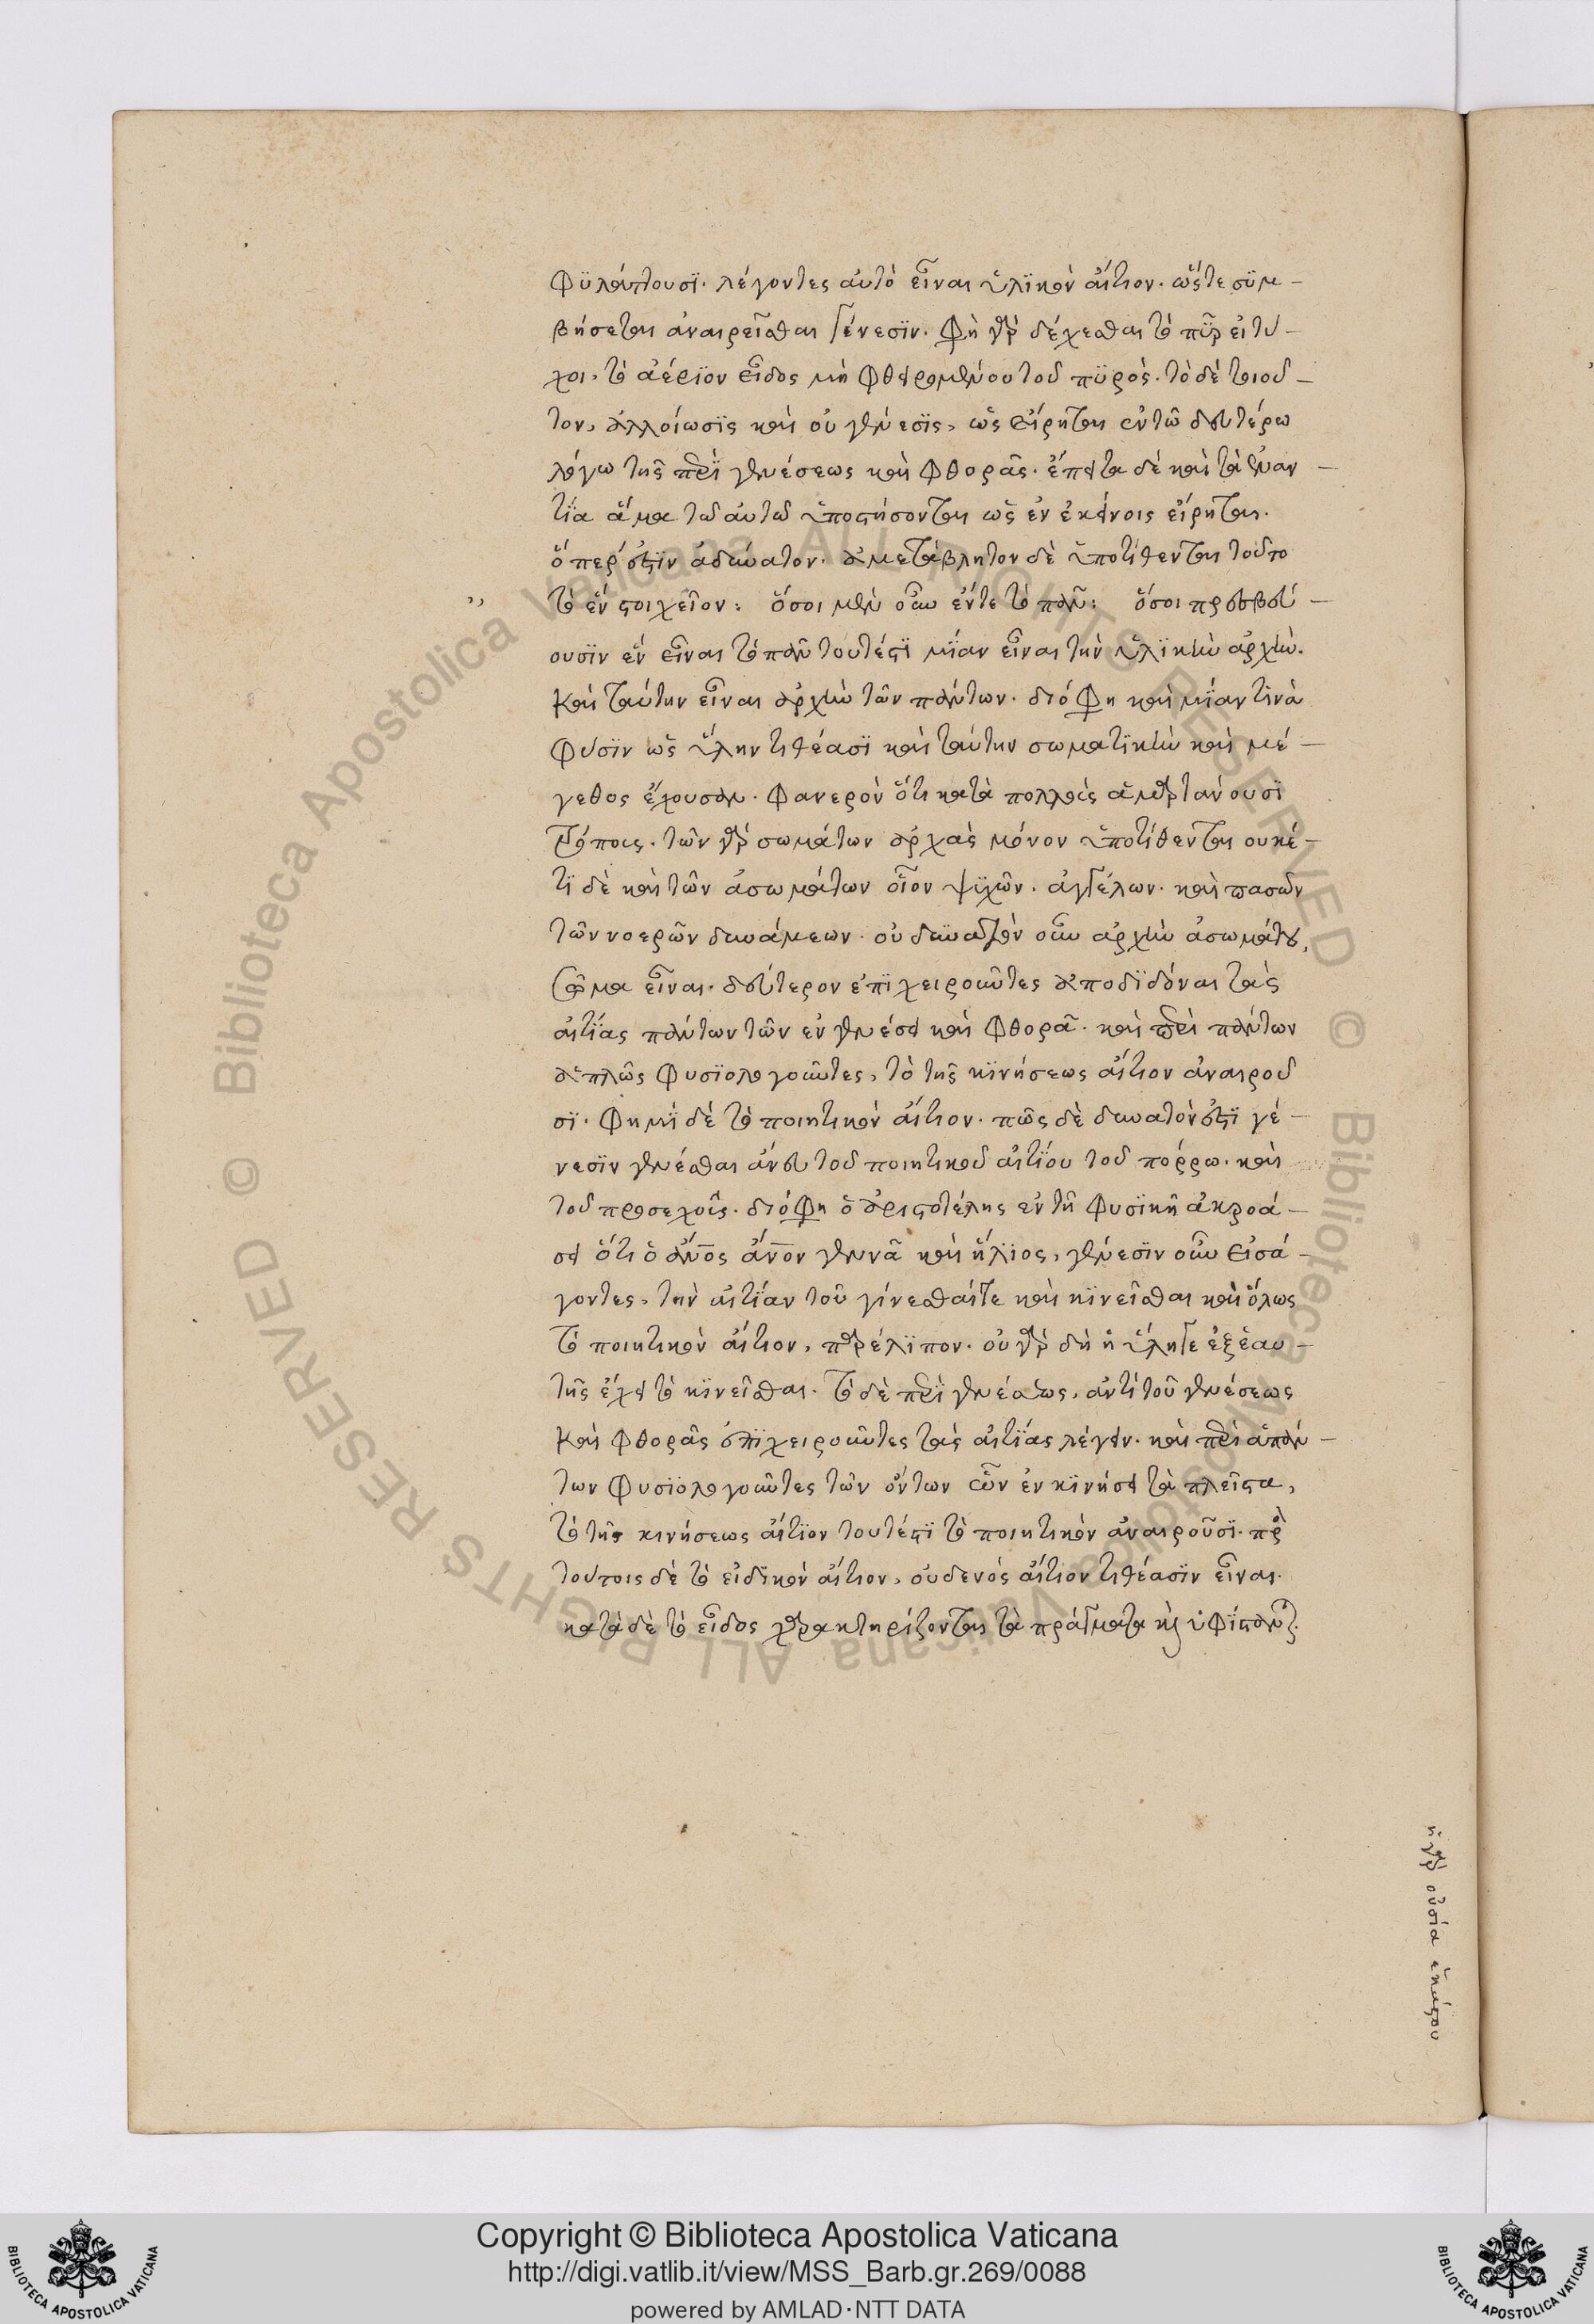 φϋλάττουσϊ. λέγοντες αὐτὸ εἶναι ὑλϊκὸν αἴτιον. ὥστε σϋμ-
βήσεται ἀναιρεῖσθαι γένεσϊν. φὴ γὰρ δέχεσθαι τὸ πῦρ εἰ τύ-
χοι, τὸ ἀέρϊον εἶδος μὴ φθειρομένου τοῦ πϋρός. τὸ δὲ τοιοῦ-
τον, ἀλλοίωσϊς καὶ οὐ γένεσϊς, ὡς εἴρηται ἐν τῶ δευτέρω
λόγω τῆς περὶ γενέσεως καὶ φθορᾶς. ἔπειτα δὲ καὶ τὰ ἐναν-
τΐα ἅμα τῶ αὐτῶ ὑποστήσονται ὡς ἐν ἐκείνοις εἴρηται.
ὅπερ ἐστϊν ἀδύνατον. ἀμετάβλητον δὲ ὑποτίθενται τοῦτο
,, τὸ ἓν στοιχεῖον: ὅσοι μὲν οὖν ἕν τε τὸ πᾶν: ὅσοι πρεσβεύ-
ουσϊν ἓν εἶναι τὸ πᾶν τουτέστϊ μΐαν εἶναι τὴν ὑλϊκὴν ἀρχήν.
καὶ ταύτην εἶναι ἀρχὴν τῶν πάντων. διό φη καὶ μΐαν τϊνὰ
φύσϊν ὡς ὕλην τιθέασϊ καὶ ταύτην σωματϊκὴν καὶ μέ-
γεθος ἔχουσαν. φανερὸν ὅτι κατὰ πολλοὺς ἁμαρτάνουσϊ
τρόπους. τῶν γὰρ σωμάτων ἀρχὰς μόνον ὑποτίθενται ουκέ-
τϊ δὲ καὶ τῶν ἀσωμάτων οἷον ψϋχῶν. ἀγγέλων. καὶ πασῶν
τῶν νοερῶν δυνάμεων. οὐ δυνατὸν οὖν ἀρχὴν ἀσωμάτου,
σῶμα εἶναι. δεύτερον ἐπϊχειροῦντες ἀποδϊδόναι τὰς
αἰτΐας πάντων τῶν ἐν γενέσει καὶ φθορᾶ. καὶ περὶ πάντων
ἁπλῶς φυσϊολογοῦντες, τὸ τῆς κϊνήσεως αἴτιον ἀναιροῦ
σϊ. φημϊ δὲ τὸ ποιητικὸν αἴτιον. πῶς δὲ δυνατὸν ἐστϊ γέ-
νεσϊν γενέσθαι ἄνευ τοῦ ποιητικοῦ αἰτΐου τοῦ πόρρω. καὶ
τοῦ προσεχοῦς. διό φη ὁ ἀριστοτέλης ἐν τῆ φυσϊκῆ ἀκροά-
σει ὅτι ὁ ἄνος ἄνον γεννᾶ καὶ ἥλϊος, γένεσϊν οὖν εἰσά-
γοντες, τὴν αἰτΐαν τοῦ γίνεσθαίτε καὶ κϊνεῖσθαι καὶ ὅλως
τὸ ποιητικὸν αἴτιον, παρέλϊπον. οὐ γὰρ δὴ ἡ ὕληγε ἐξ ἑαυ-
τῆς ἔχει τὸ κϊνεῖσθαι. τὸ δὲ περὶ γενέσεως, ἀντὶ τοῦ γενέσεως
καὶ φθορᾶς ἐπϊχειροῦντες τὰς αἰτΐας λέγειν. καὶ περὶ ἁπάν-
των φυσϊολογοῦντες τῶν ὄντων ὧν ἐν κϊνήσει τὰ πλεῖστα,
τὸ τῆς κινήσεως αἴτϊον τουτέστϊ τὸ ποιητικὸν ἀναιροῦσϊ. πρὸ
τούτοις δὲ τὸ εἰδϊκὸν αἴτιον, οὐδενὸς αἴτιον τιθέασϊν εἶναι.
κατὰ δὲ τὸ εἶδος χαρακτηρίζονται τὰ πράγματα κ ὑφΐσταντ
ἡ γὰρ οὐσία ἑκάστου
Copyright © Biblioteca Apostolica Vaticana
http://digi.vatlib.it/view/MSS_Barb.gr.269/0088
powered by AMLAD·NTT DATA
BIBLIOTECA APOSTOLICA VATICANA
BIBLIOTECA APOSTOLICA VATICANA
© Biblioteca Apostolica Vaticana ALL RIGHTS RESERVED
© Biblioteca Apostolica Vaticana ALL RIGHTS RESERVED